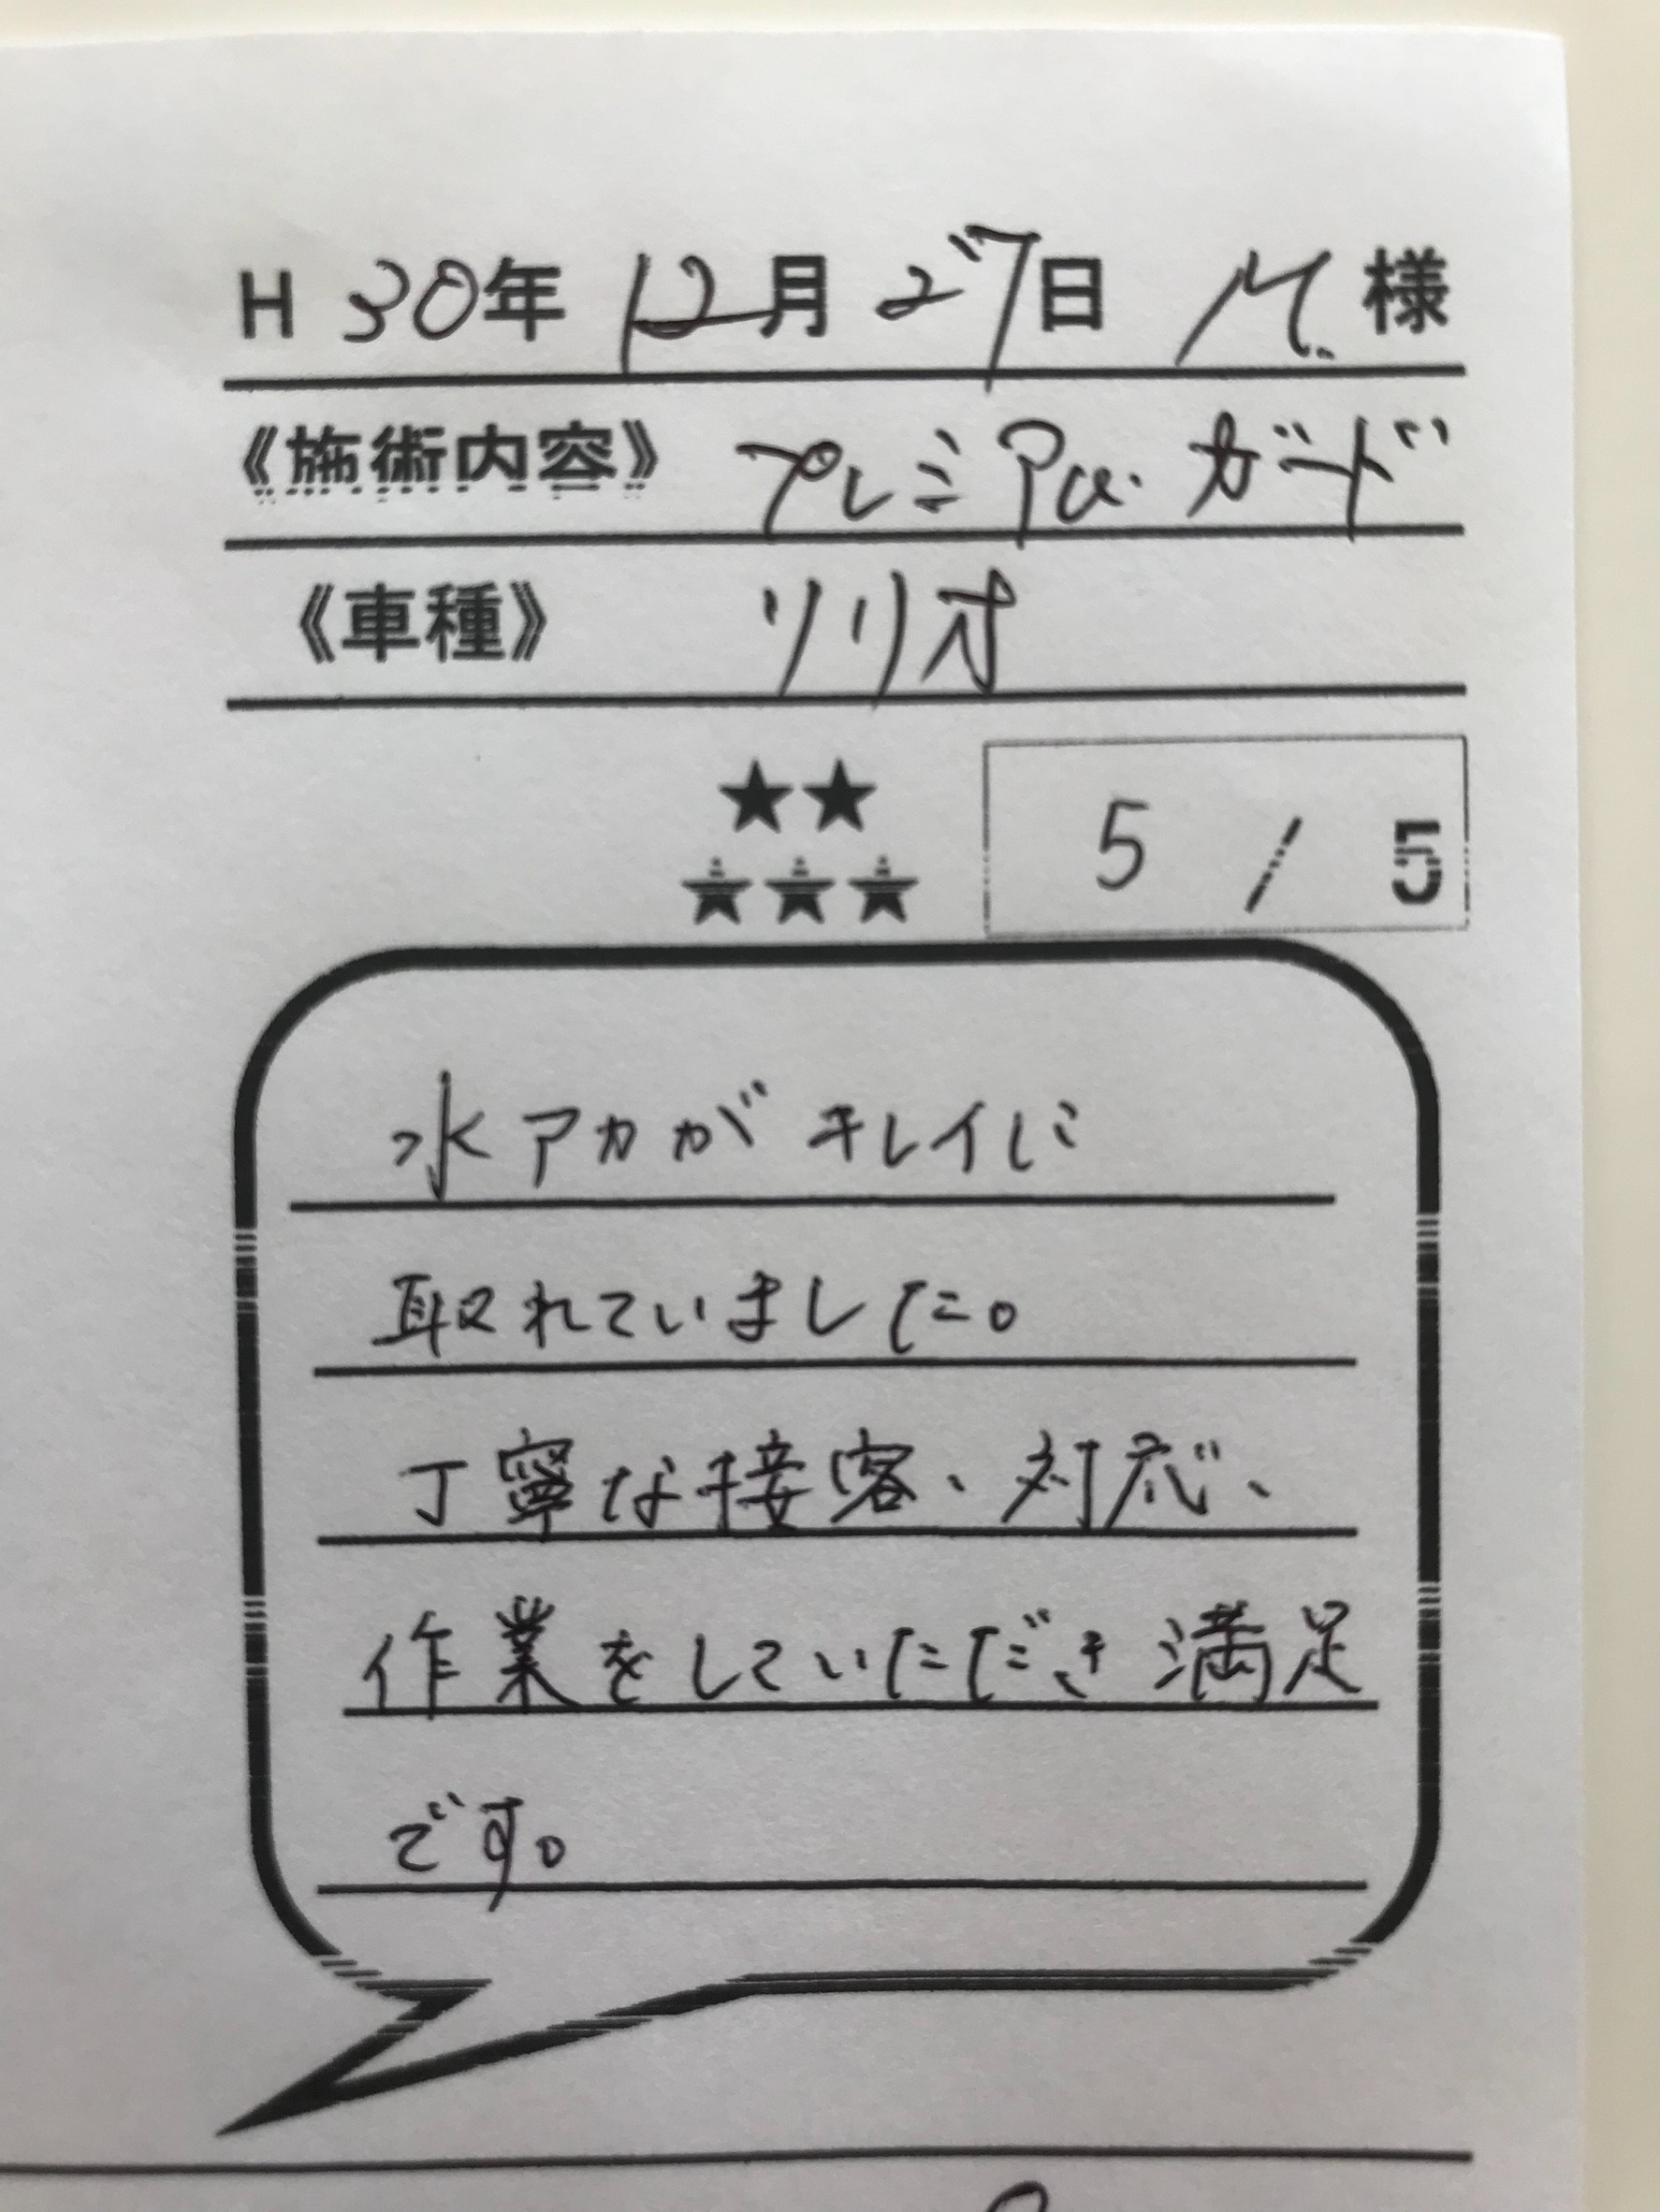 H 30年 12月 27日 M.様
《施術内容》 プレミアム・ガード
《車種》 ソリオ
★★
★★★
5 / 5
水アカがキレイに
取れていました。
丁寧な接客、対応、
作業をしていただき満足
です。